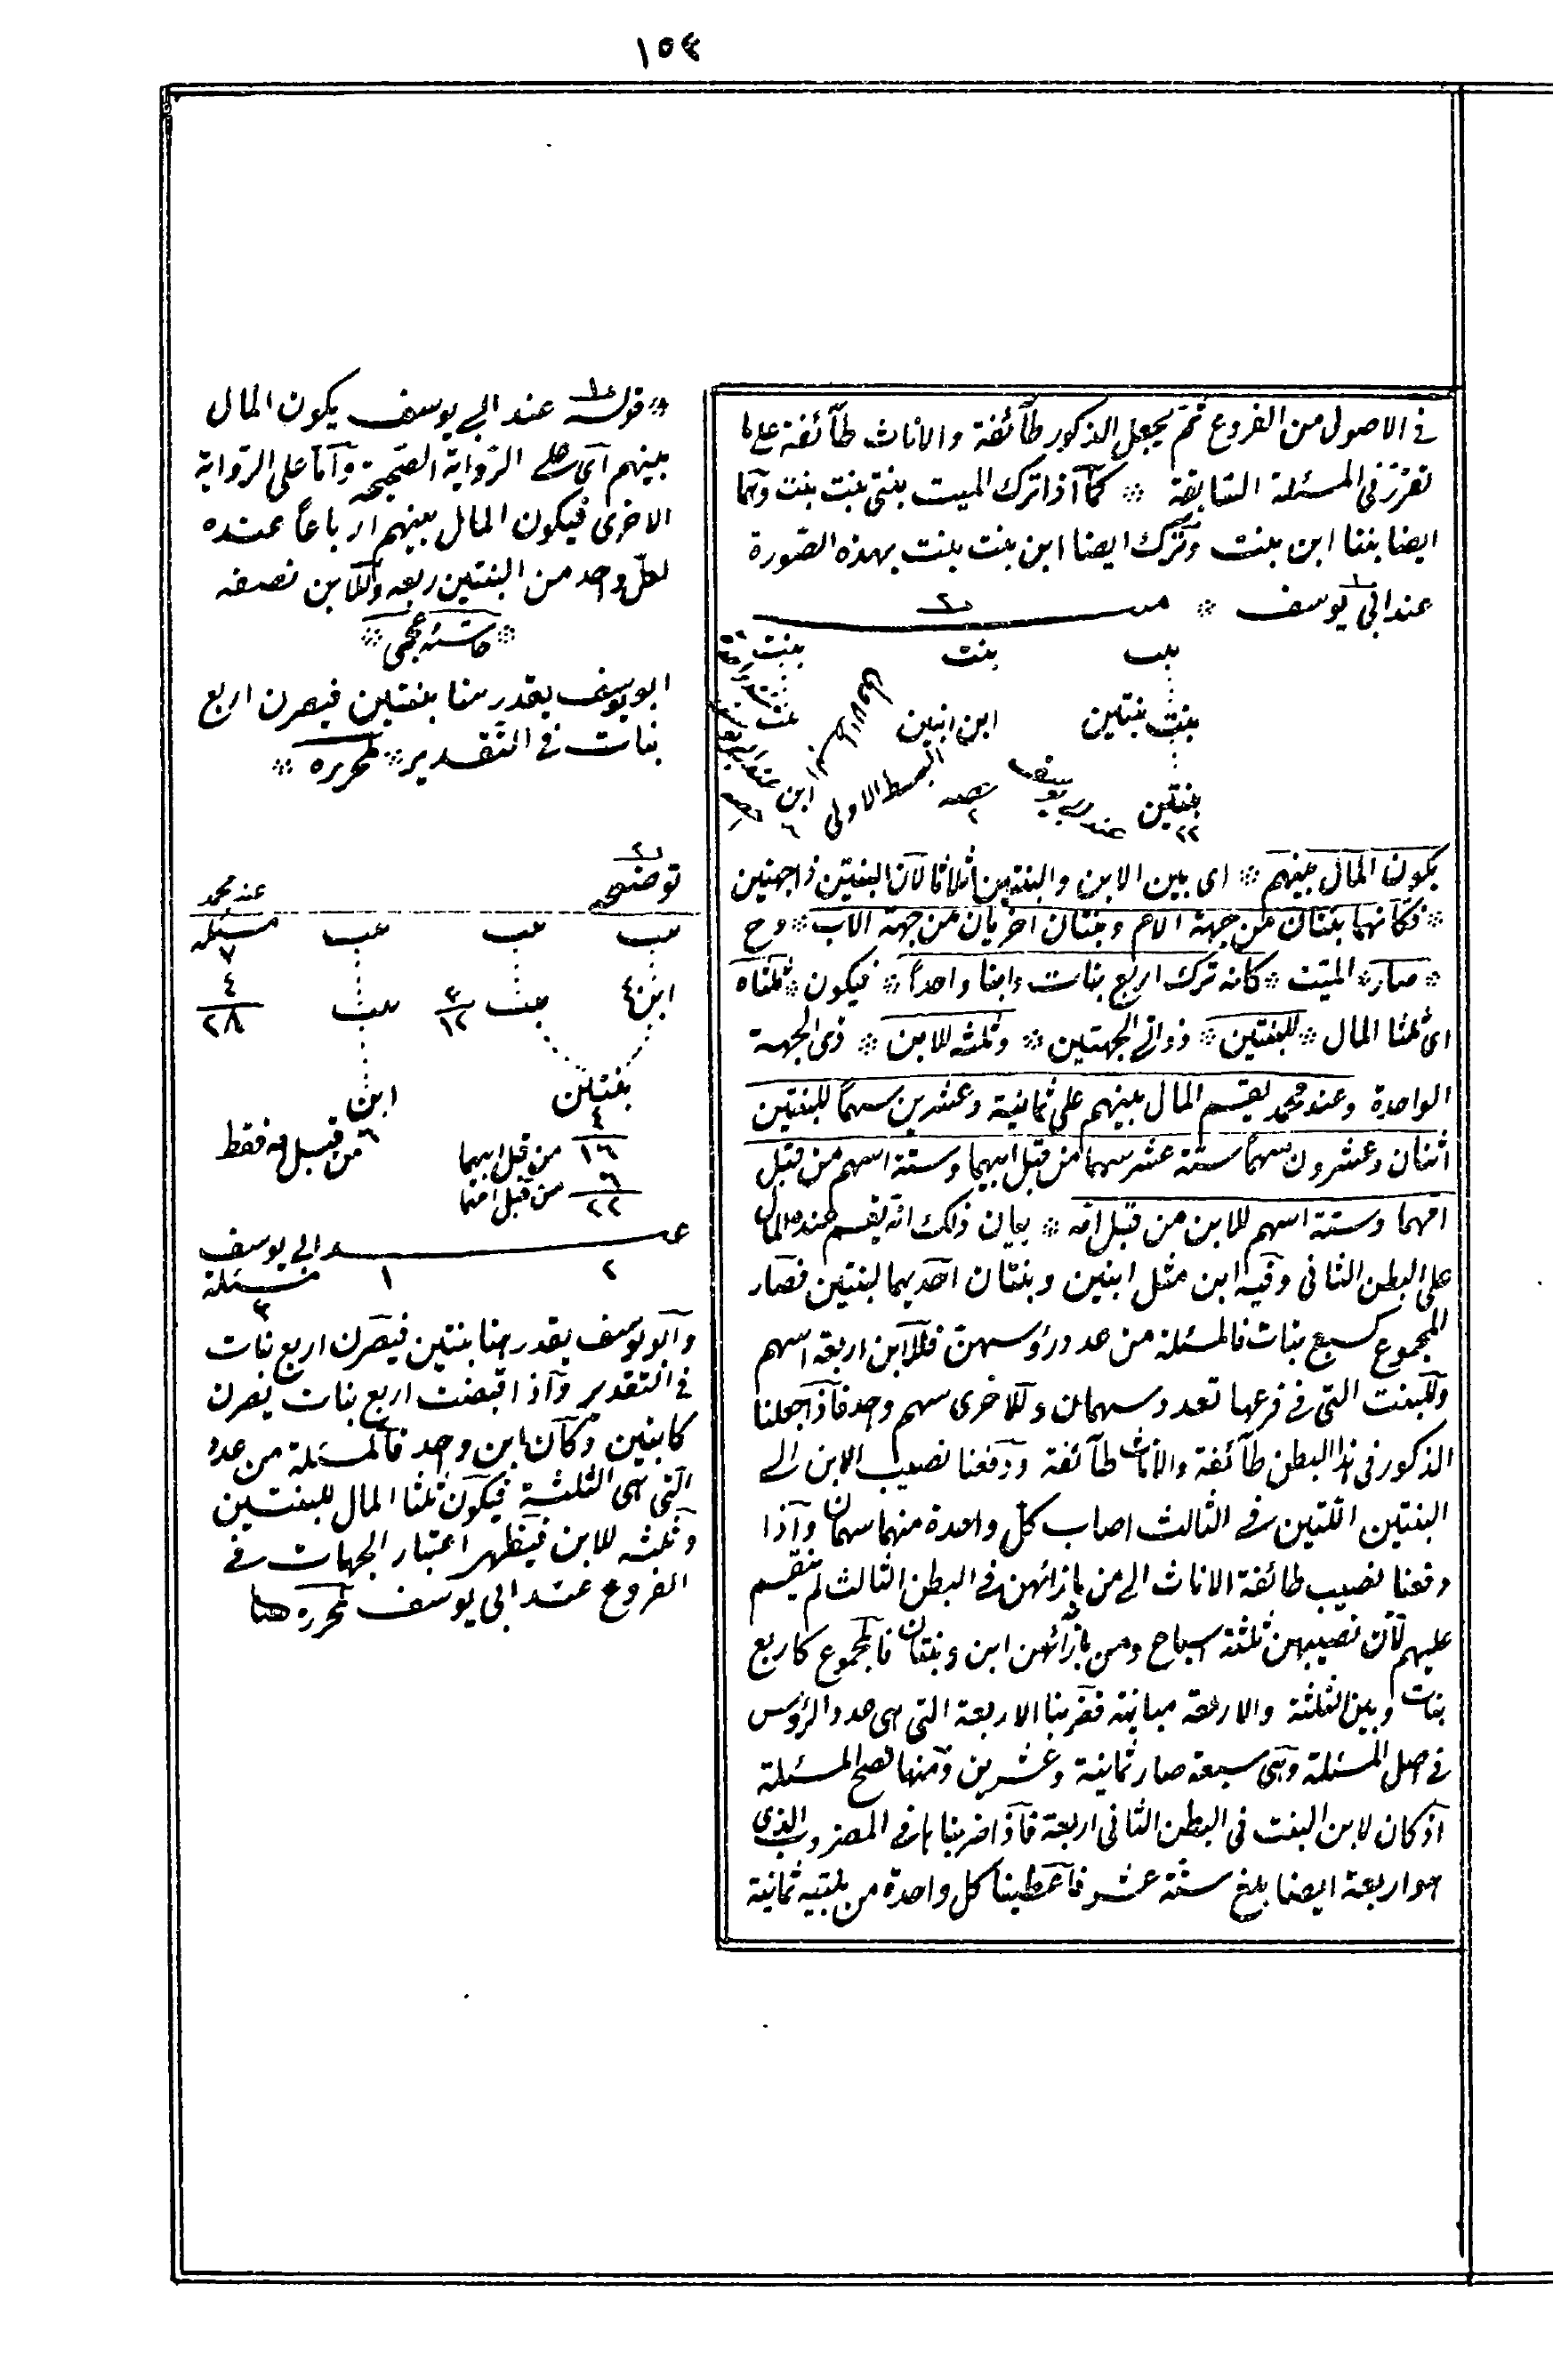 ١٥٤
في الاصول من الفروع ثم يجعل الذكور طآئفة والاناث طآئفة على ما
تقرر في المسئلة السابقة * كما اذا ترك الميت بنتي بنت بنت وهما
ايضا بنتا ابن بنت وترك ايضا ابن بنت بنت بهذه الصورة
عند ابي يوسف *
بنت بنت بنت
بنت بنتين ابن ابنين بنت
بنتين ابن
٢٢ ٦
البسط الاولى
يكون المال بينهم * اى بين الابن والبنتين اثلاثا لان البنتين ذا جهتين
* فكانهما بنتان من جهة الام وبنتان اخريان من جهة الاب * وح
* صار * الميت * كانه ترك اربع بنات وابنا واحداً * فيكون * ثلثاه
اى ثلثا المال * للبنتين * ذواتى الجهتين * وثلثه للابن * ذى الجهة
الواحدة وعند محمد يقسم المال بينهم على ثمانية وعشرين سهمًا للبنتين
اثنان وعشرون سهمًا ستة عشر سهما من قبل ابيهما وستة اسهم من قبل
امهما وستة اسهم للابن من قبل امه * بيان ذلك انه يقسم عنده المال
على البطن الثانى وفيه ابن مثل ابنين وبنتان احديهما لبنتين فصار
المجموع كسبع بنات فالمسئلة من عدد رؤسهن فللابن اربعة اسهم
وللبنت التى في فرعها تعدد سهمان وللاخرى سهم واحد فاذا جعلنا
الذكور في هذا البطن طآئفة والاناث طآئفة ودفعنا نصيب الابن الى
البنتين اللتين في الثالث اصاب كل واحدة منهما سهمان واذا
دفعنا نصيب طائفة الاناث الى من بازائهن في البطن الثالث لم ينقسم
عليهم لان نصيبهن ثلثة اسباع ومن بازآئهن ابن وبنتان فالمجموع كاربع
بنات وبين الثلثة والاربعة مباينة فضربنا الاربعة التى هى عدد الرؤس
في اصل المسئلة وهى سبعة صار ثمانية وعشرين ومنها تصح المسئلة
اذ كان لابن البنت في البطن الثانى اربعة فاذا ضربناها في المضروب الذى
هو اربعة ايضا بلغ ستة عشر فاعطينا كل واحدة من بنتيه ثمانية
* قوله عند ابي يوسف يكون المال
بينهم اى على الرواية الصحيحة واما على الرواية
الاخرى فيكون المال بينهم ارباعاً عنده
لكل واحد من البنتين ربعه وللابن نصفه
* حاشيه عجمى *
ابو يوسف يقدر هنا بنتين فيصرن اربع
بنات في التقدير * لمحرره *
توضيحه
عند محمد
بنت بنت بنت مسئله ٧
ابن ٤ بنت ٣ ١٢ بنت ٤ ٢٨
بنتين ابن
٤ ٦
١٦ من قبل ابيهما من قبل امه فقط
٦
٢٢ من قبل امهما
عند ابي يوسف
٢ ١ مسئلة ٣
وابو يوسف يقدر هنا بنتين فيصرن اربع بنات
في التقدير واذا قبضت اربع بنات يصرن
كابنين وكان ابن واحد فالمسئلة من عدد
التى هى الثلثة فيكون ثلثا المال للبنتين
وثلثه للابن فيظهر اعتبار الجهات في
الفروع عند ابي يوسف لمحرره هنا